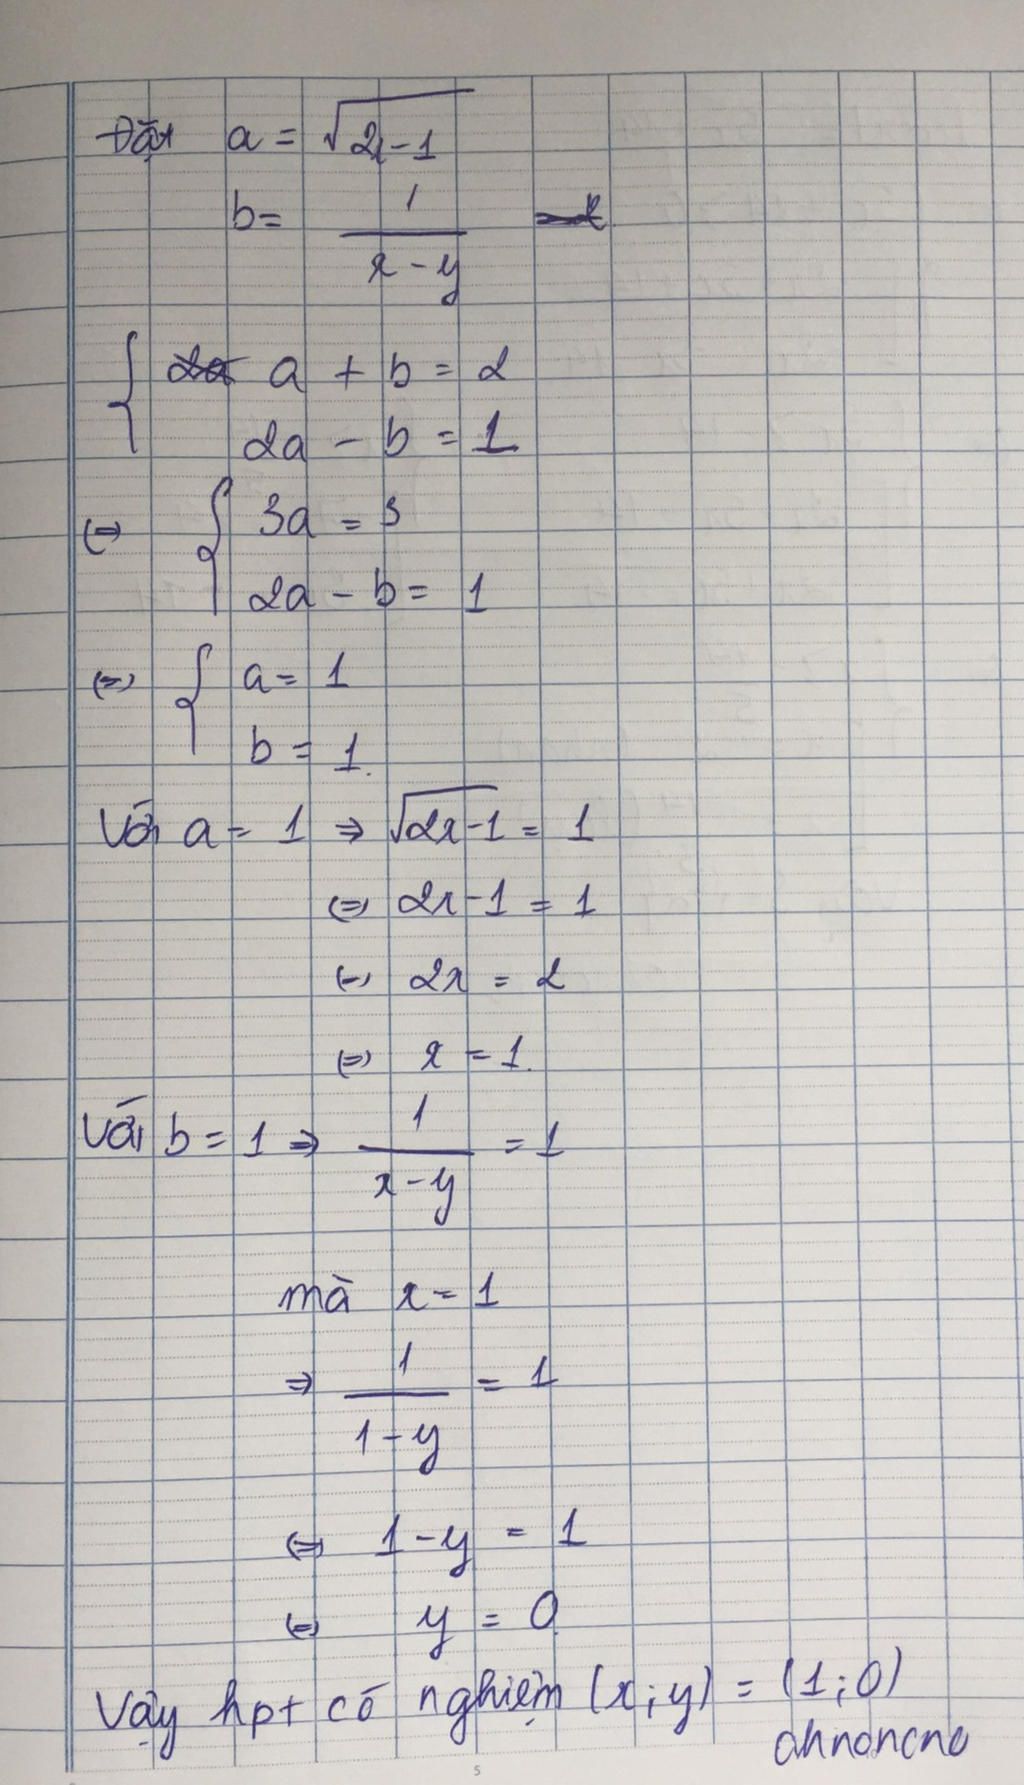 Đặt a = √2x-1
b = 1/x-y
{ a + b = 2
2a - b = 1
⇔ { 3a = 3
2a - b = 1
⇔ { a = 1
b = 1.
Với a = 1 ⇒ √2x-1 = 1
⇔ 2x-1 = 1
⇔ 2x = 2
⇔ x = 1.
Với b = 1 ⇒ 1/x-y = 1
mà x = 1
⇒ 1/1-y = 1
⇔ 1-y = 1
⇔ y = 0
Vậy hpt có nghiệm (x;y) = (1;0)
ahnancnc
5